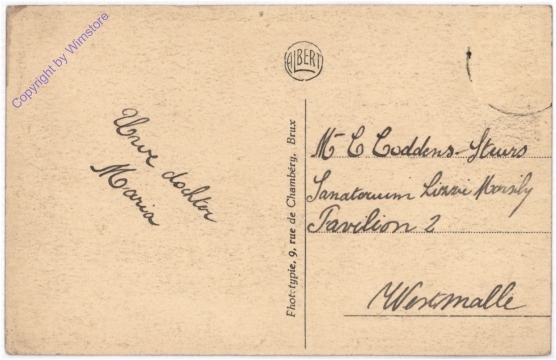 Copyright by Wimstore
ALBERT
Uwe dochter
Maria
Phototypie, 9, rue de Chambéry, Brux
Mr C Coddens-Steurs
Sanatorium Lizzie Marsily
Pavilion 2
Westmalle